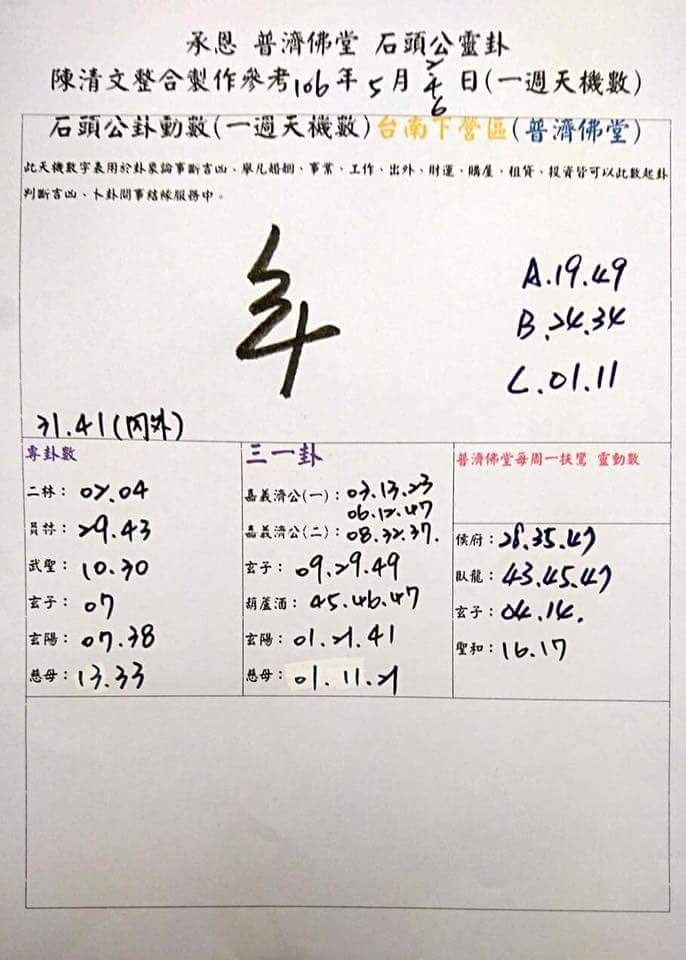 承恩 普濟佛堂 石頭公靈卦
陳清文整合製作參考106年5月2/4/6日(一週天機數)
石頭公卦動數(一週天機數)台南下營區(普濟佛堂)
此天機數字表用於卦象論事斷吉凶、舉凡婚姻、事業、工作、出外、財運、購屋、租貸、投資皆可以此數起卦
判斷吉凶、卜卦問事結緣服務中。
A.19.49
B.24.34
C.01.11
21.41(內外)
專卦數
二林：02.04
員林：29.43
武聖：10.30
玄子：07
玄陽：07.38
慈母：13.33
三一卦
嘉義濟公(一)：03.13.23
06.12.47
嘉義濟公(二)：08.32.37.
玄子：09.29.49
葫蘆酒：45.46.47
玄陽：01.21.41
慈母：01.11.21
普濟佛堂每周一扶鸞 靈動數
侯府：28.35.47
臥龍：43.45.47
玄子：04.14.
聖和：16.17